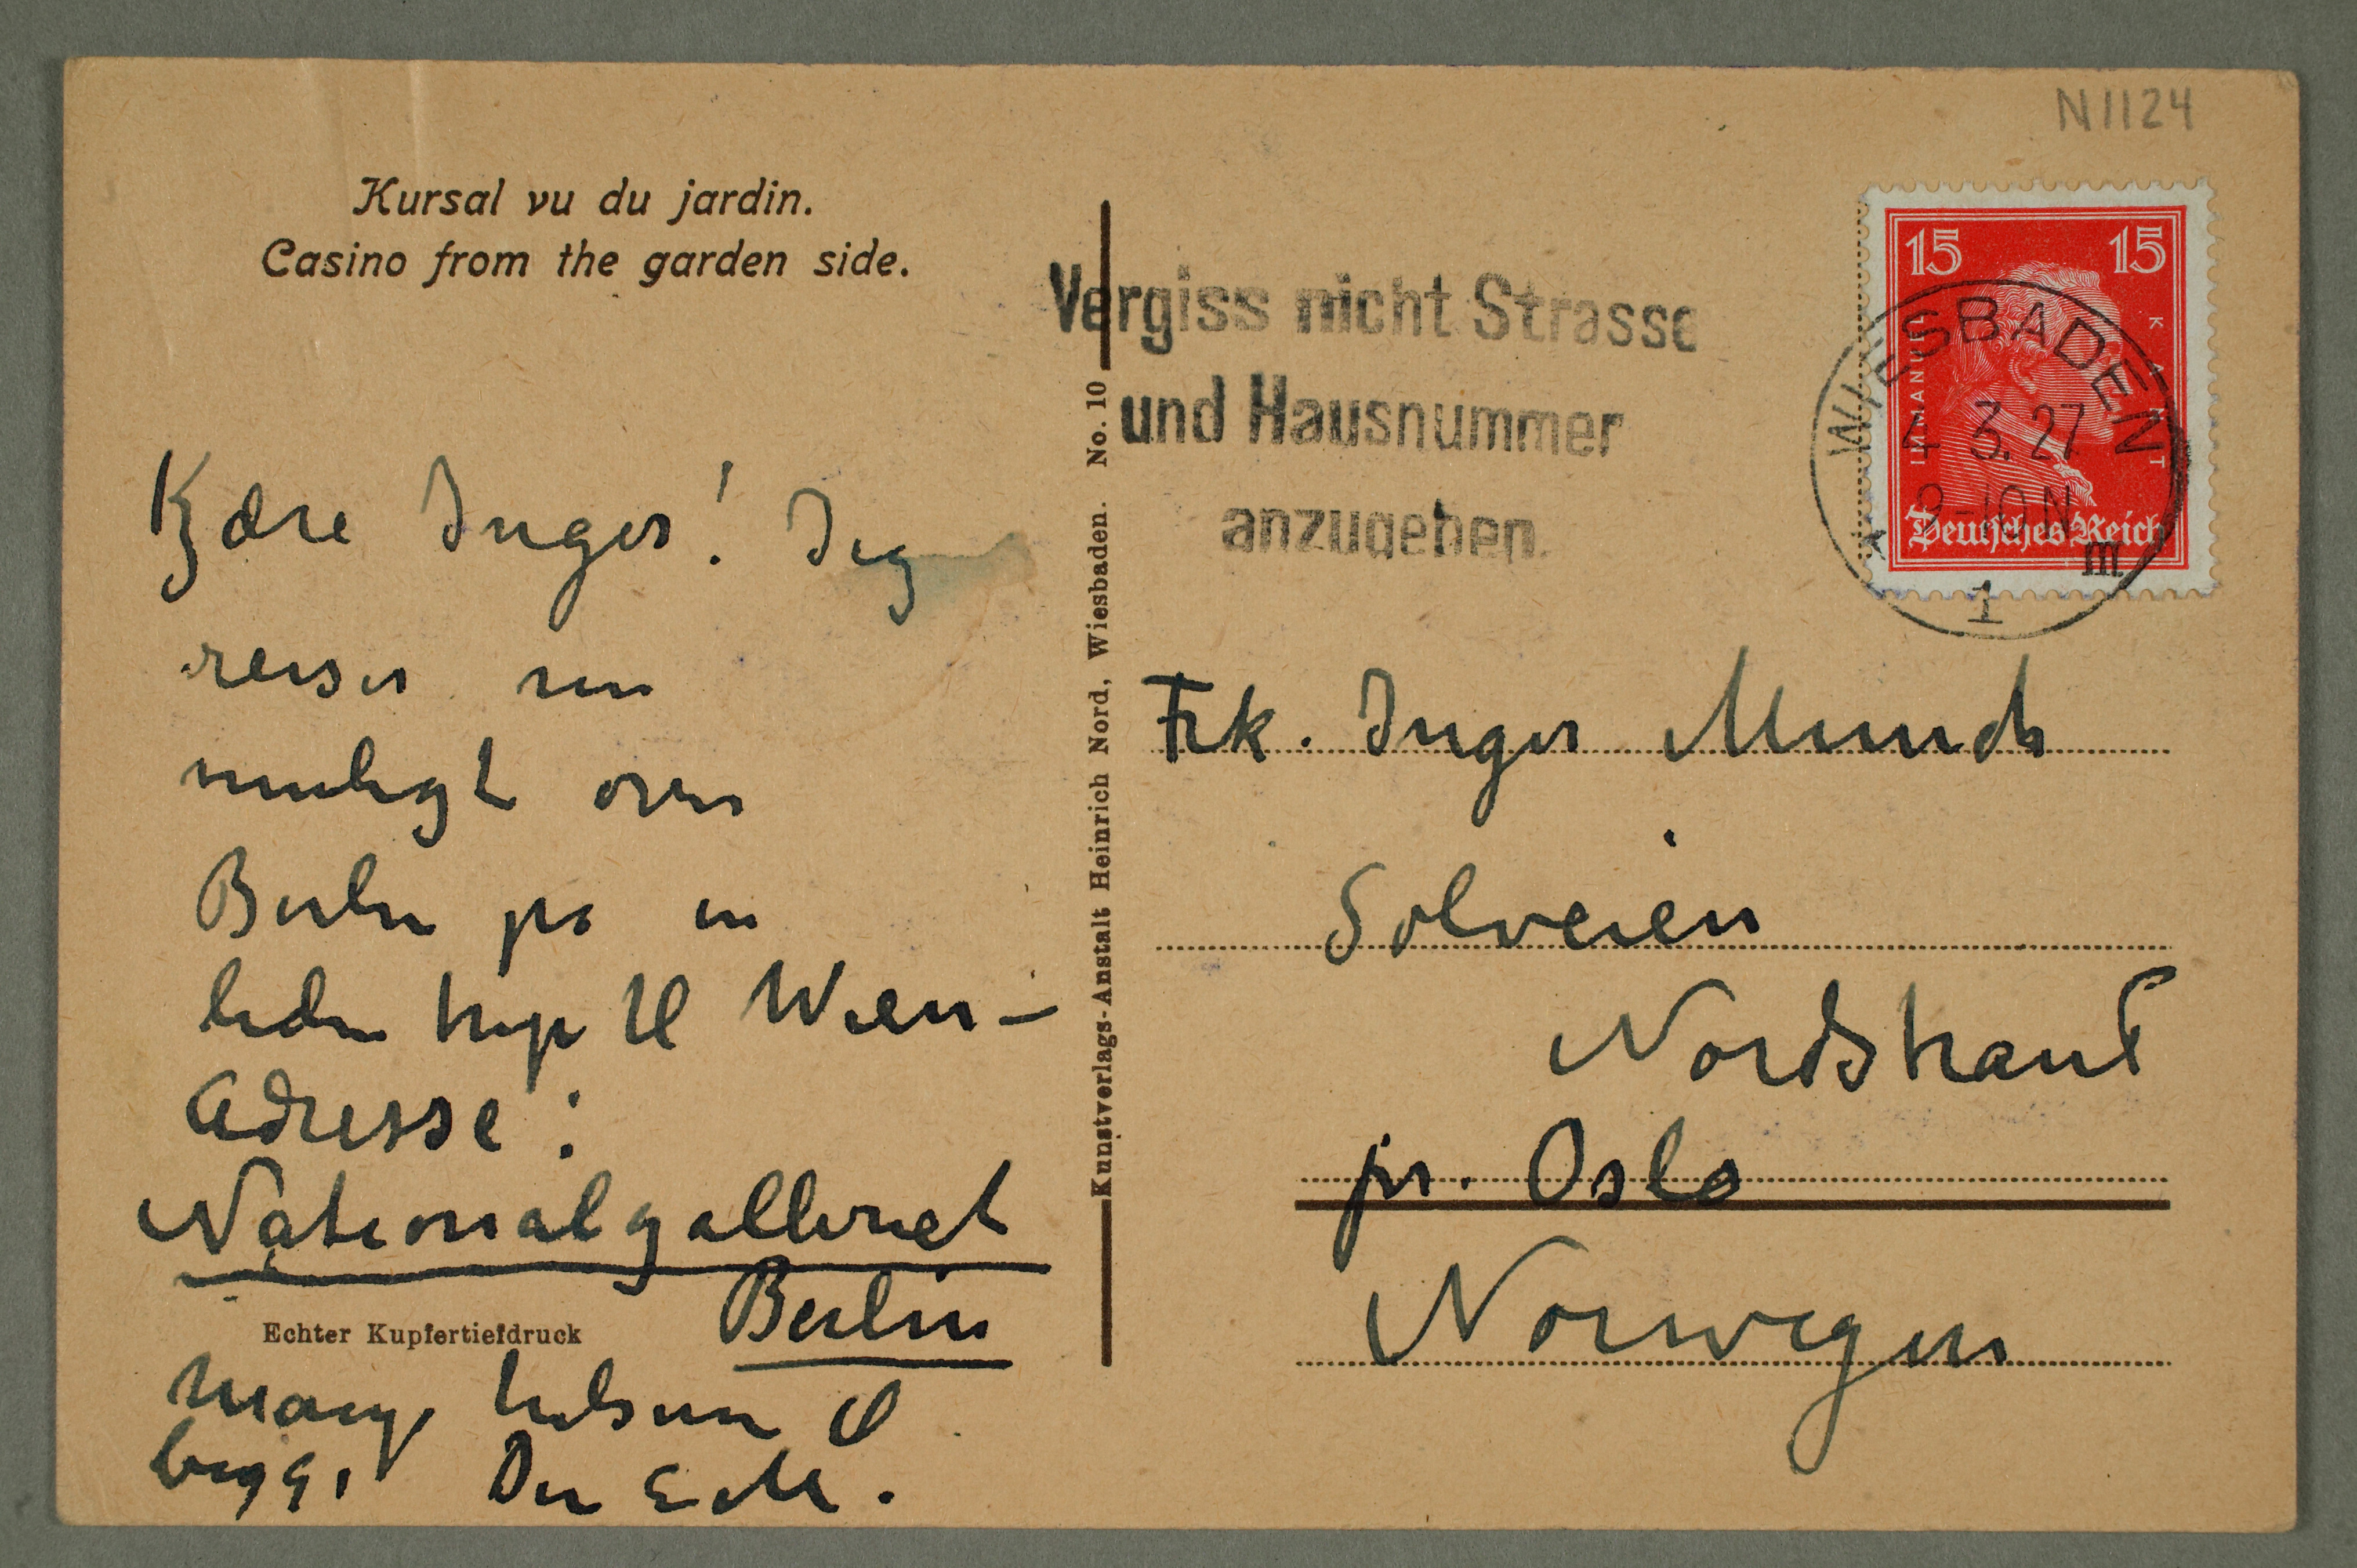 N1124
Kursal vu du jardin.
Casino from the garden side.
Vergiss nicht Strasse
und Hausnummer
anzugeben.
15 15
IMMANUEL KANT
Deutsches Reich
WIESBADEN
4 3.27
9-10 N
* 1 m
Kjære Inger! Jeg
reiser nu
muligt over
Berlin på en
liden trip til Wien –
Adresse:
Nationalgalleriet
Berlin
Echter Kupfertiefdruck
Mange hilsener til
begge Din E M.
Kunstverlags-Anstalt Heinrich Nord, Wiesbaden. No. 10
Frk. Inger Munch
Solveien
Nordstrand
pr. Oslo
Norwegen